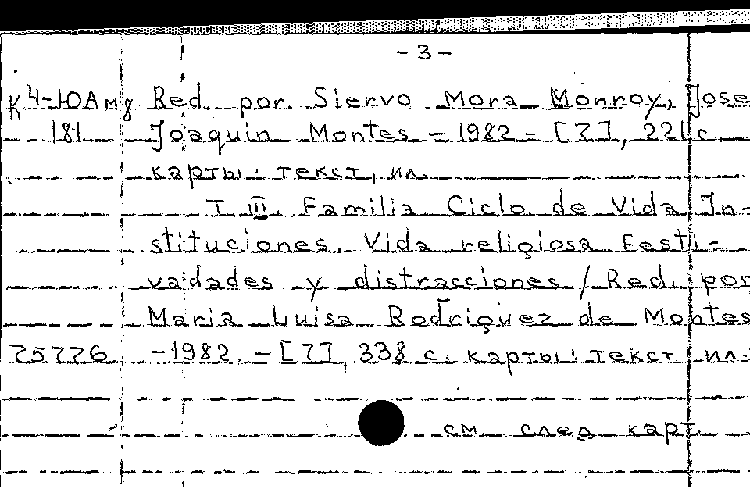 - 3 -
К4-ЮАмд Red. por. Siervo Mora Monroy, Jose
181 Joaquin Montes - 1982 - [7], 221 с
карты: текст, ил.
Т III. Familia Ciclo de Vida In-
stituciones. Vida religiosa Festi-
vadades y distracciones / Red. por
Maria Luisa Rodriguez de Montes
75776 -1982. - [7], 338 с. карты: текст ил.
см след карт.